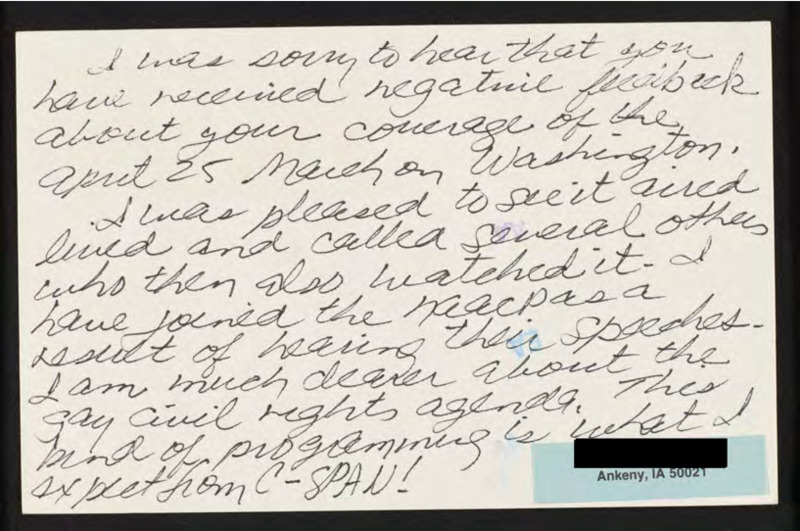 I was sorry to hear that you
have received negative feedback
about your coverage of the
April 25 March on Washington.
I was pleased to see it aired
lived and called several others
who then also watched it - I
have joined the NAACP as a
result of hearing their speeches -
I am much clearer about the
gay civil rights agenda. This
kind of programming is what I
expect from C-SPAN!
Ankeny, IA 50021